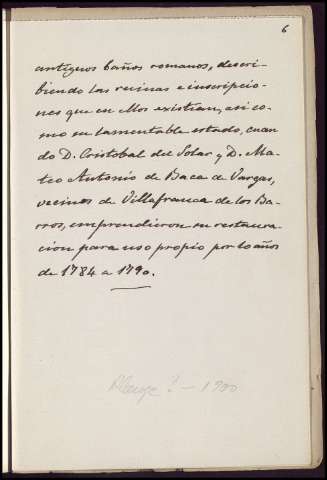 6
antiguos baños romanos, descri-
biendo las ruinas e inscripcio-
nes que en ellos existian, asi co-
mo su lamentable estado, cuan
do D. Cristobal del Solar y D. Ma-
teo Antonio de Baca de Vargas,
vecinos de Villafranca de los Ba-
rros, emprendieron su restaura-
cion para uso propio por los años
de 1784 a 1790.
Alange? - 1900